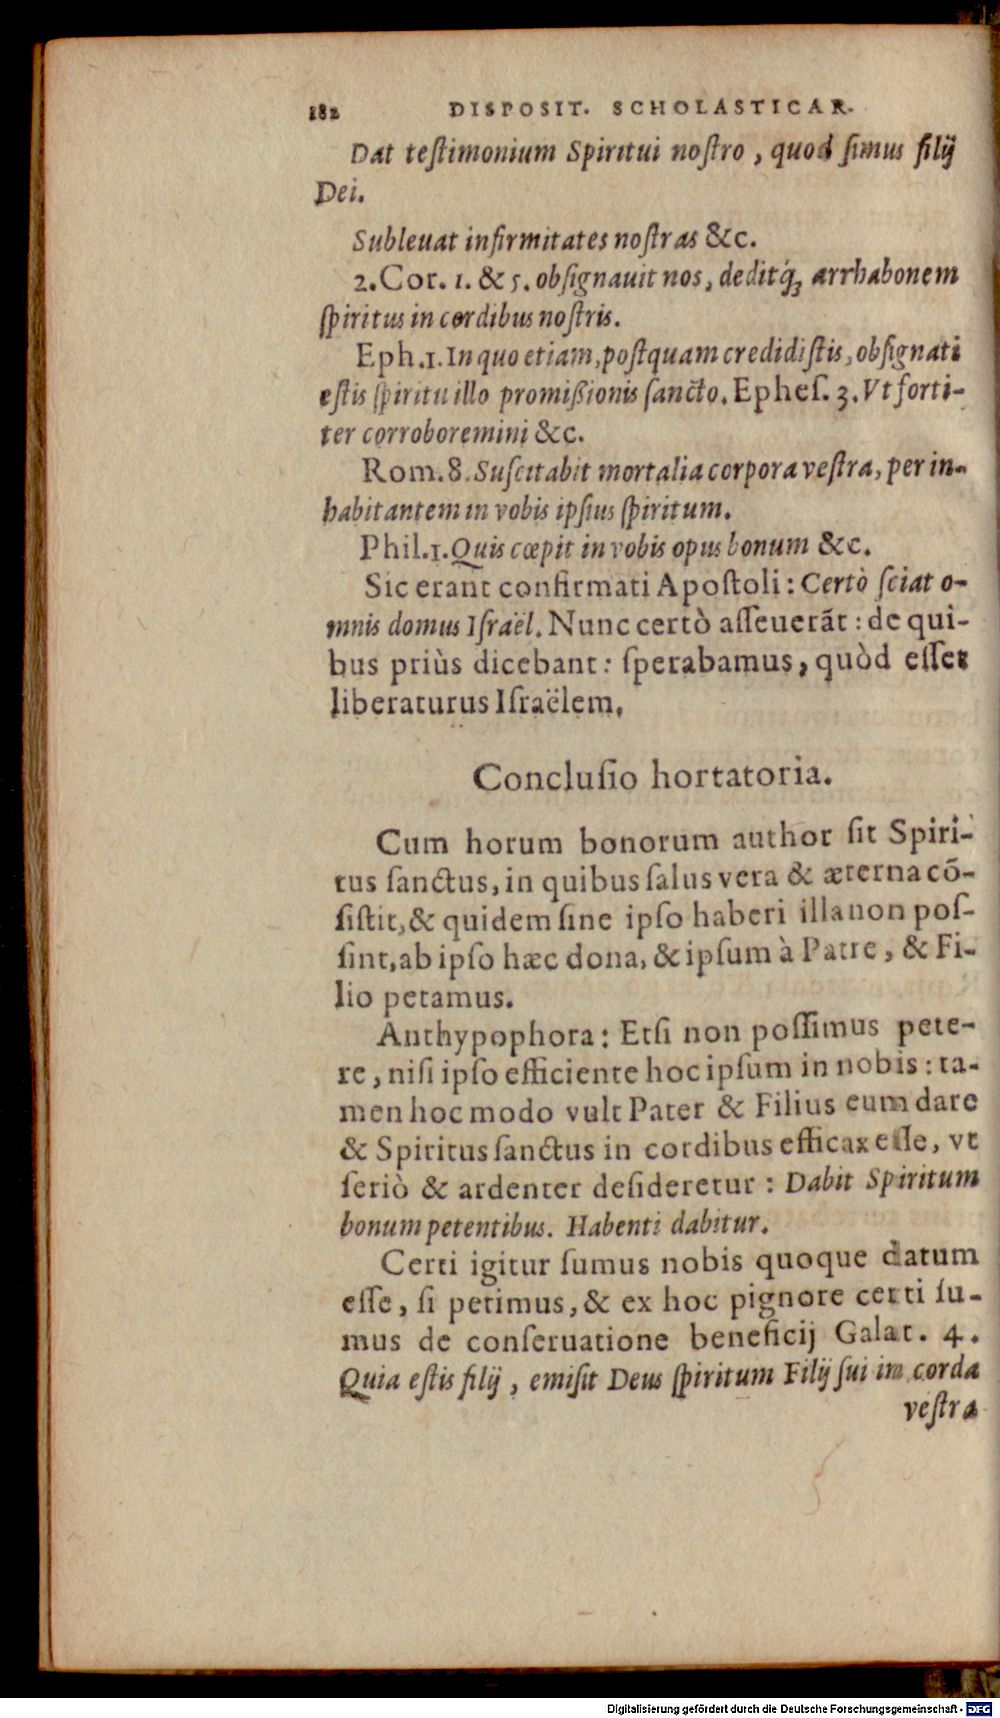 182 DISPOSIT. SCHOLASTICAR.
Dat teſtimonium Spiritui noſtro, quod ſimus filij
Dei.
Subleuat infirmitates noſtras &c.
2. Cor. 1. & 5. obſignauit nos, deditq́; arrhabonem
ſpiritus in cordibus noſtris.
Eph. 1. In quo etiam, poſtquam credidiſtis, obſignati
eſtis ſpiritu illo promißionis ſancto. Epheſ. 3. Vt forti-
ter corroboremini &c.
Rom. 8. Suſcitabit mortalia corpora veſtra, per in-
habitantem in vobis ipſius ſpiritum.
Phil. 1. Quis cœpit in vobis opus bonum &c.
Sic erant confirmati Apoſtoli: Certò ſciat o-
mnis domus Iſraël. Nunc certò aſſeuerãt: de qui-
bus priùs dicebant: ſperabamus, quòd eſſet
liberaturus Iſraëlem.
Concluſio hortatoria.
Cum horum bonorum author ſit Spiri-
tus ſanctus, in quibus ſalus vera & æterna cõ-
ſiſtit, & quidem ſine ipſo haberi illa non poſ-
ſint, ab ipſo hæc dona, & ipſum à Patre, & Fi-
lio petamus.
Anthypophora: Etſi non poſſimus pete-
re, niſi ipſo efficiente hoc ipſum in nobis: ta-
men hoc modo vult Pater & Filius eum dare
& Spiritus ſanctus in cordibus efficax eſſe, vt
ſeriò & ardenter deſideretur: Dabit Spiritum
bonum petentibus. Habenti dabitur.
Certi igitur ſumus nobis quoque datum
eſſe, ſi petimus, & ex hoc pignore certi ſu-
mus de conſeruatione beneficij Galat. 4.
Quia eſtis filij, emiſit Deus ſpiritum Filij ſui in corda
veſtra
Digitalisierung gefördert durch die Deutsche Forschungsgemeinschaft - DFG